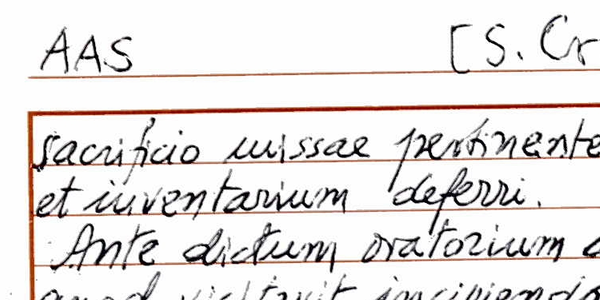 AAS [S. Cr
sacrificio missae pertinente
et inventarium deferri.
Ante dictum oratorium
quod